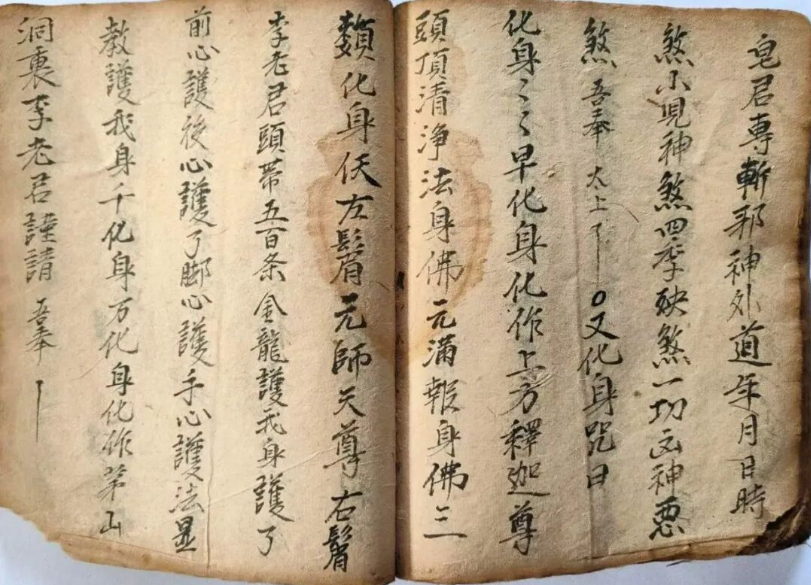 皂君專斬邪神外道年月日時
煞小児神煞四季殃煞一切凶神悪
煞吾奉太上丨○又化身咒曰
化身〻〻早化身化作上方釋迦尊
頭頂清浄法身佛元满報身佛三
類化身仸左鬅元師天尊右鬅
李老君頭帶五百条金龍護我身護了
前心護後心護了脚心護手心護法显
教護我身千化身万化身化作茅山
洞裏李老君謹請吾奉丨